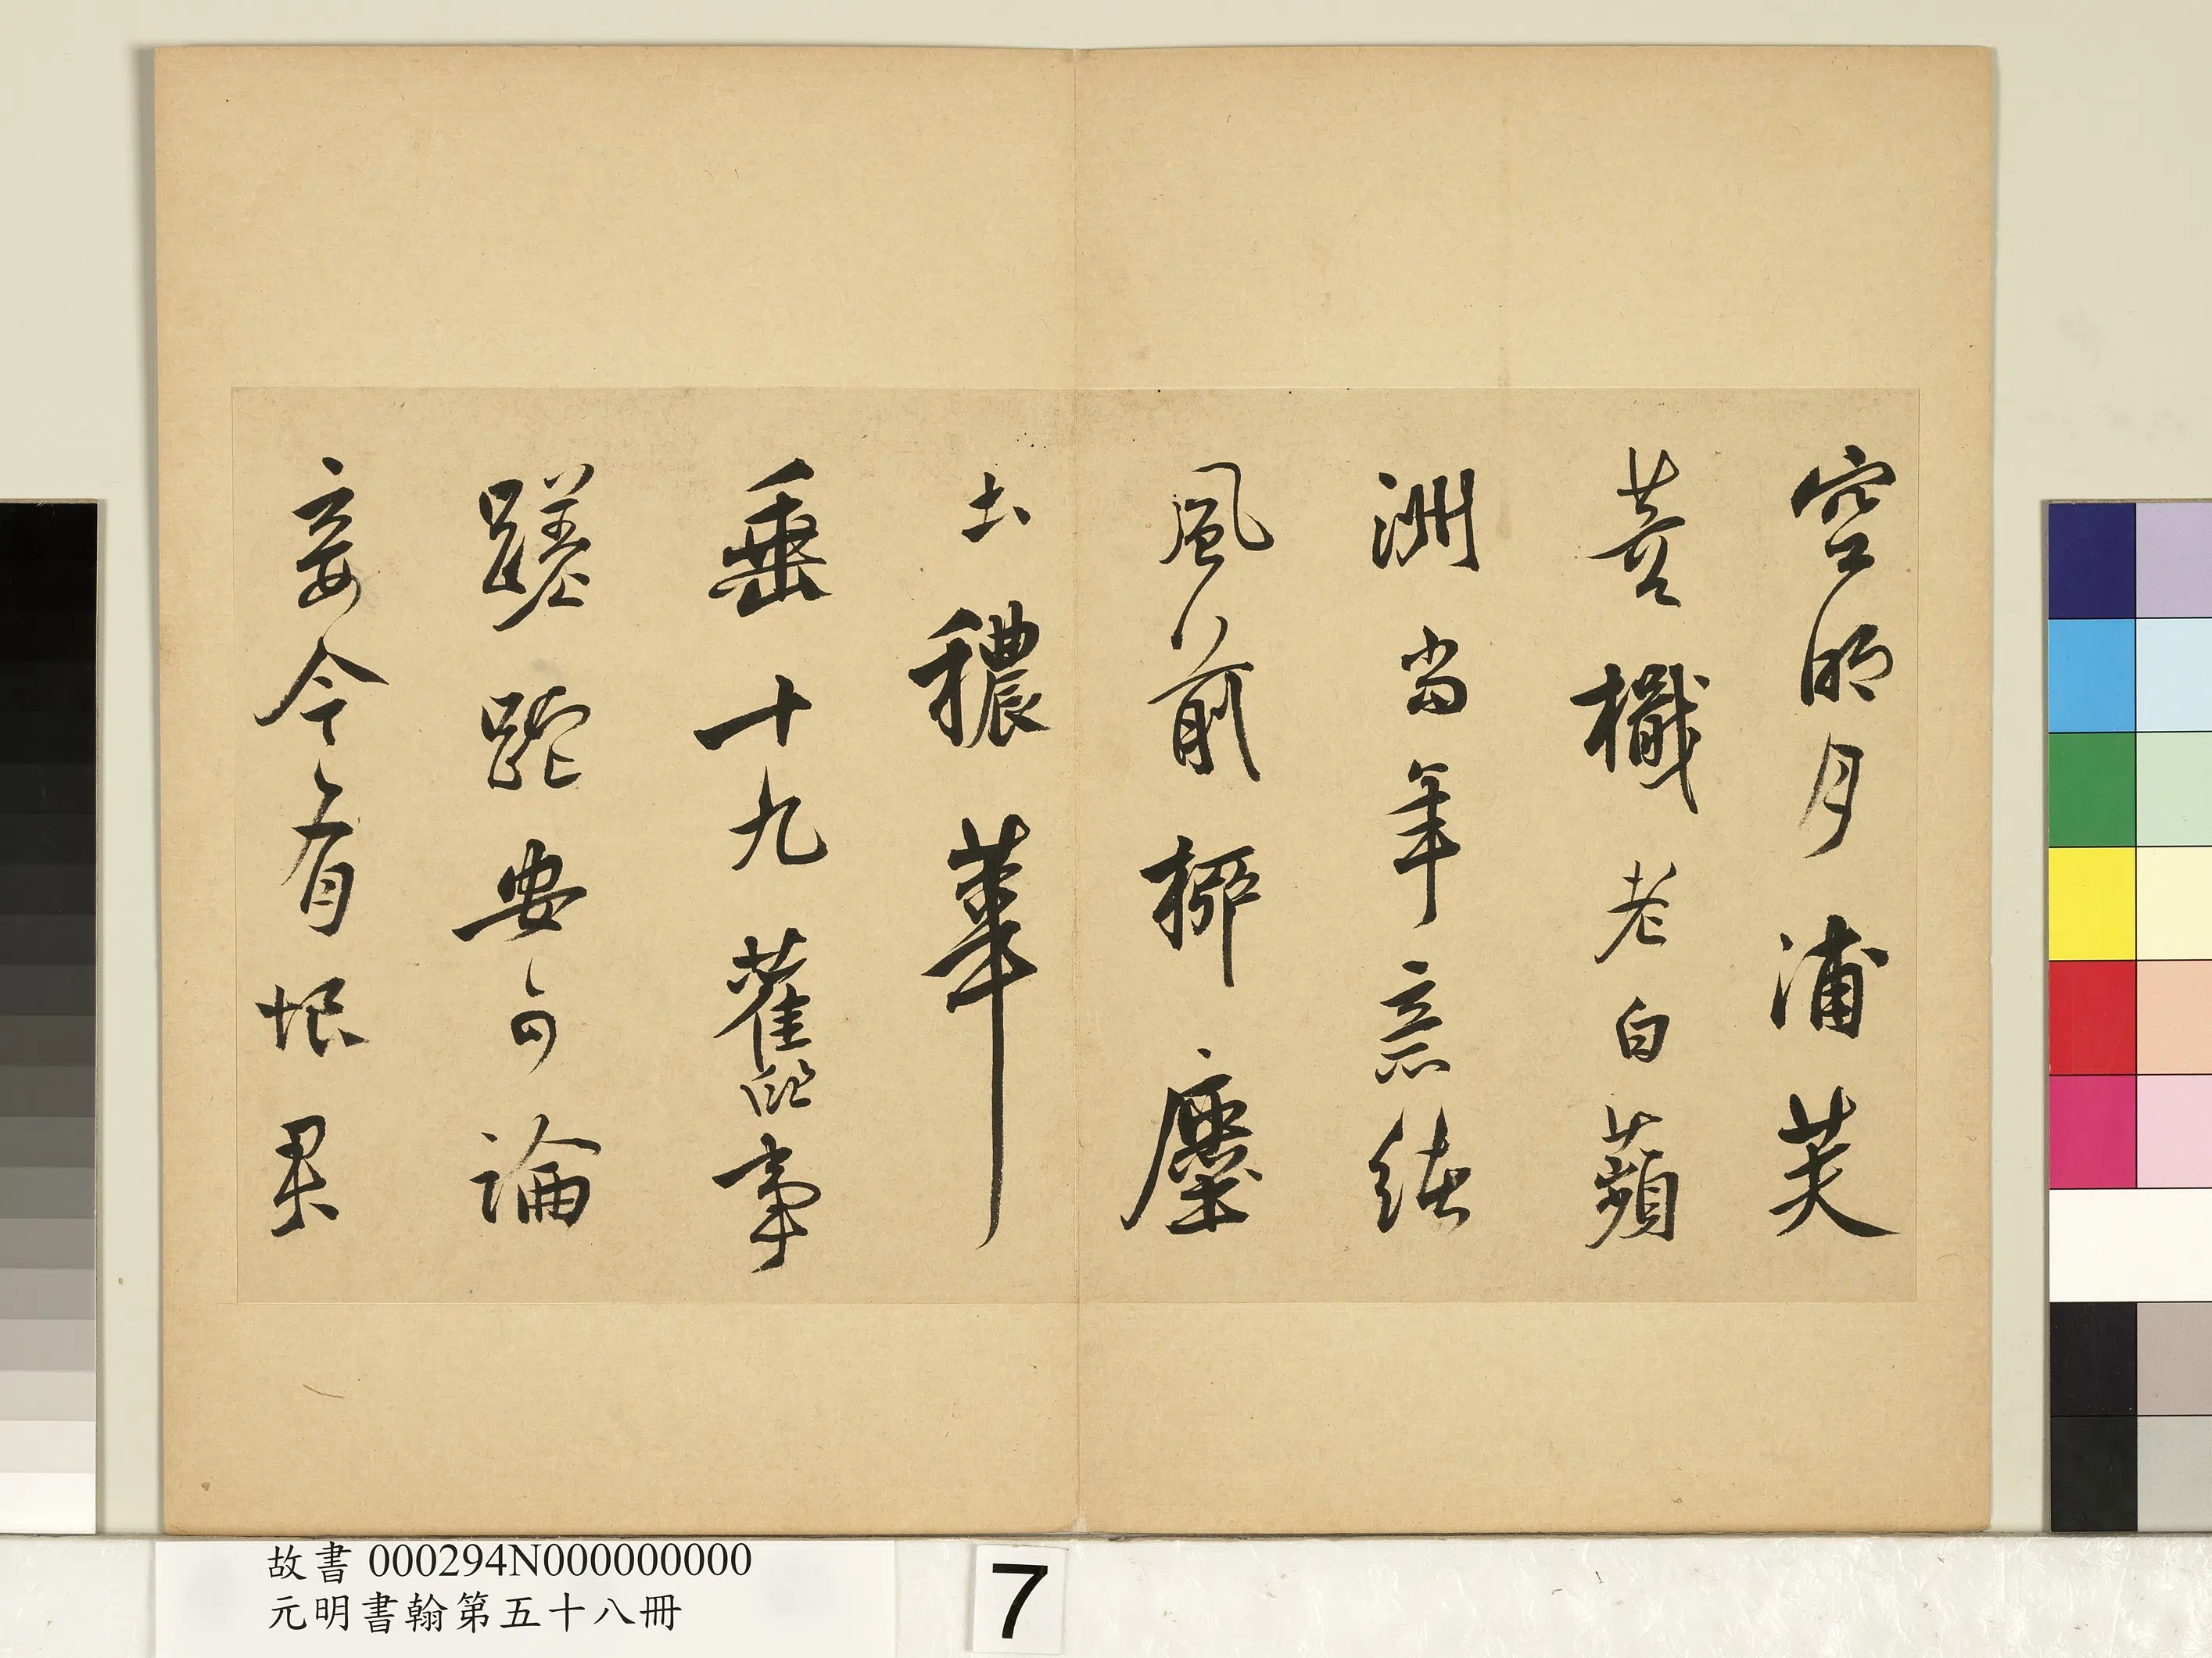 空明月浦芙
蓉檝老白蘋
洲當年意緒
風前柳塵
土穠華
垂十九舊事
蹉跎安可論
妾今有恨君
故書 000294N000000000
元明書翰第五十八冊
7